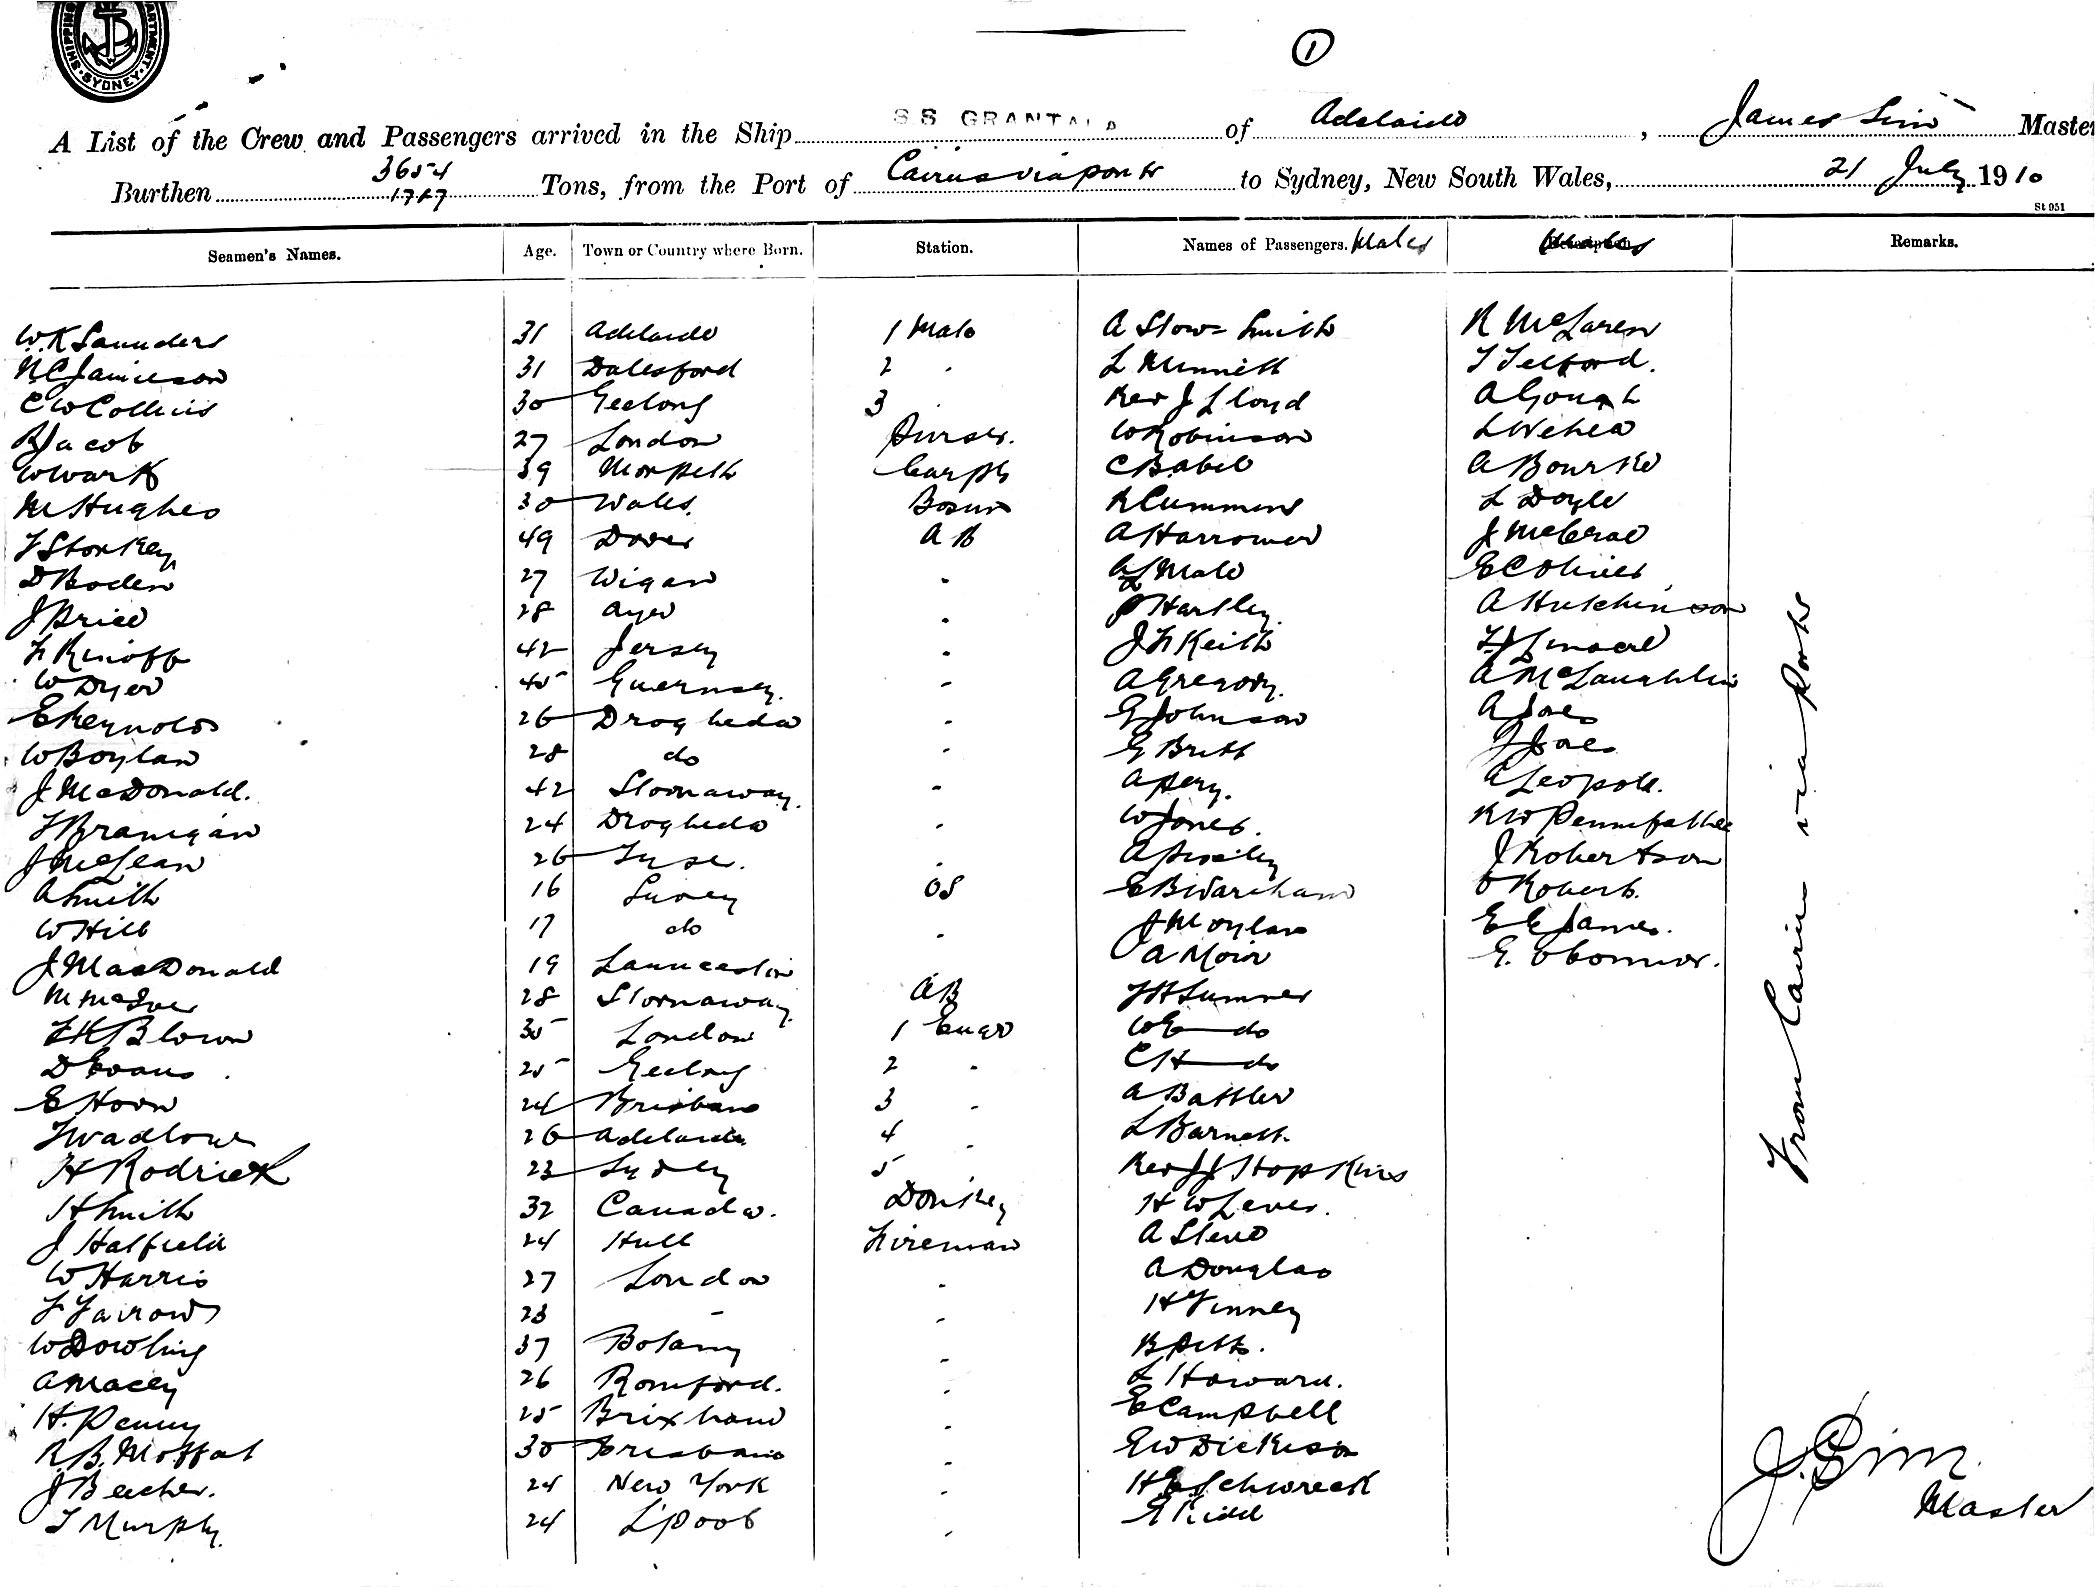 SHIPPING DEPARTMENT SYDNEY
1
A List of the Crew and Passengers arrived in the Ship SS GRANTALA of Adelaide, James Sim Master
Burthen 3654 1727 Tons, from the Port of Cairns via ports to Sydney, New South Wales, 21 July 1910
St 051
Seamen's Names. Age. Town or Country where Born. Station. Names of Passengers. Males Males Remarks.
W.K Saunders 31 Adelaide 1 Mate A Slow-Smith R McLaren
N C Jamieson 31 Dalesford 2 L Minnett T Telford.
C W Collins 30 Geelong 3 Rev J Lloyd A Gough
R Jacob 27 London Purser. W Robinson
W Wark 39 Morpeth Carptr C Babel A Bourke
M Hughes 30 Wales. Bosun R Cummins L Doyle
F Storkey 49 Dover AB A Harrower J McCrae
D Boden 27 Wigan A L Male E C Oliver
J Price 28 Ayer P Hartley. A Hutchinson
42 Jersey J F Keith
W Dyer 45 Guernsey. A Gregory. A McLaughlin
E Reynolds 26 Drogheda G Johnson A Joel
W Boylan 28 do G Britt J Joel
J McDonald. 42 Stornaway. A Pery. A Leopold.
T Branigan 24 Drogheda W Jones. R W Pennefather
J McLean 26 A Presley J Robertson
A Smith 16 Sydney OS E B Wareham O Robert.
W Hill 17 do J Moylan E E James.
J MacDonald 19 Launceston A Moir E. O'Connor.
M McIver 28 Stornaway AB T H Sumner
F H Blown 35 London 1 Engr W E do
D Evans 25 Geelong 2 C H do
E Hoon 24 Brisbane 3 A Battler
T Wadlow 26 Adelaide 4 L Barnett.
H Rodrick 23 Sydney 5 Rev J J Hopkins
H Smith 32 Canada. Donkey H W Lever.
J Hatfield 24 Hull Fireman A Steve
W Harris 27 London A Douglas
F Farrow 23 - H Finney
W Dowling 37 Botany B Pitt.
A Macey 26 Romford. L Howard.
H. Penny 25 Brixham E Campbell
R.B. Moffat 30 Brisbane E W Dickeson
J Beecher. 24 New York H.E. Schwreck
T Murphy. 24 L'pool E Kidd
From Cairns via ports
J. Sim
Master